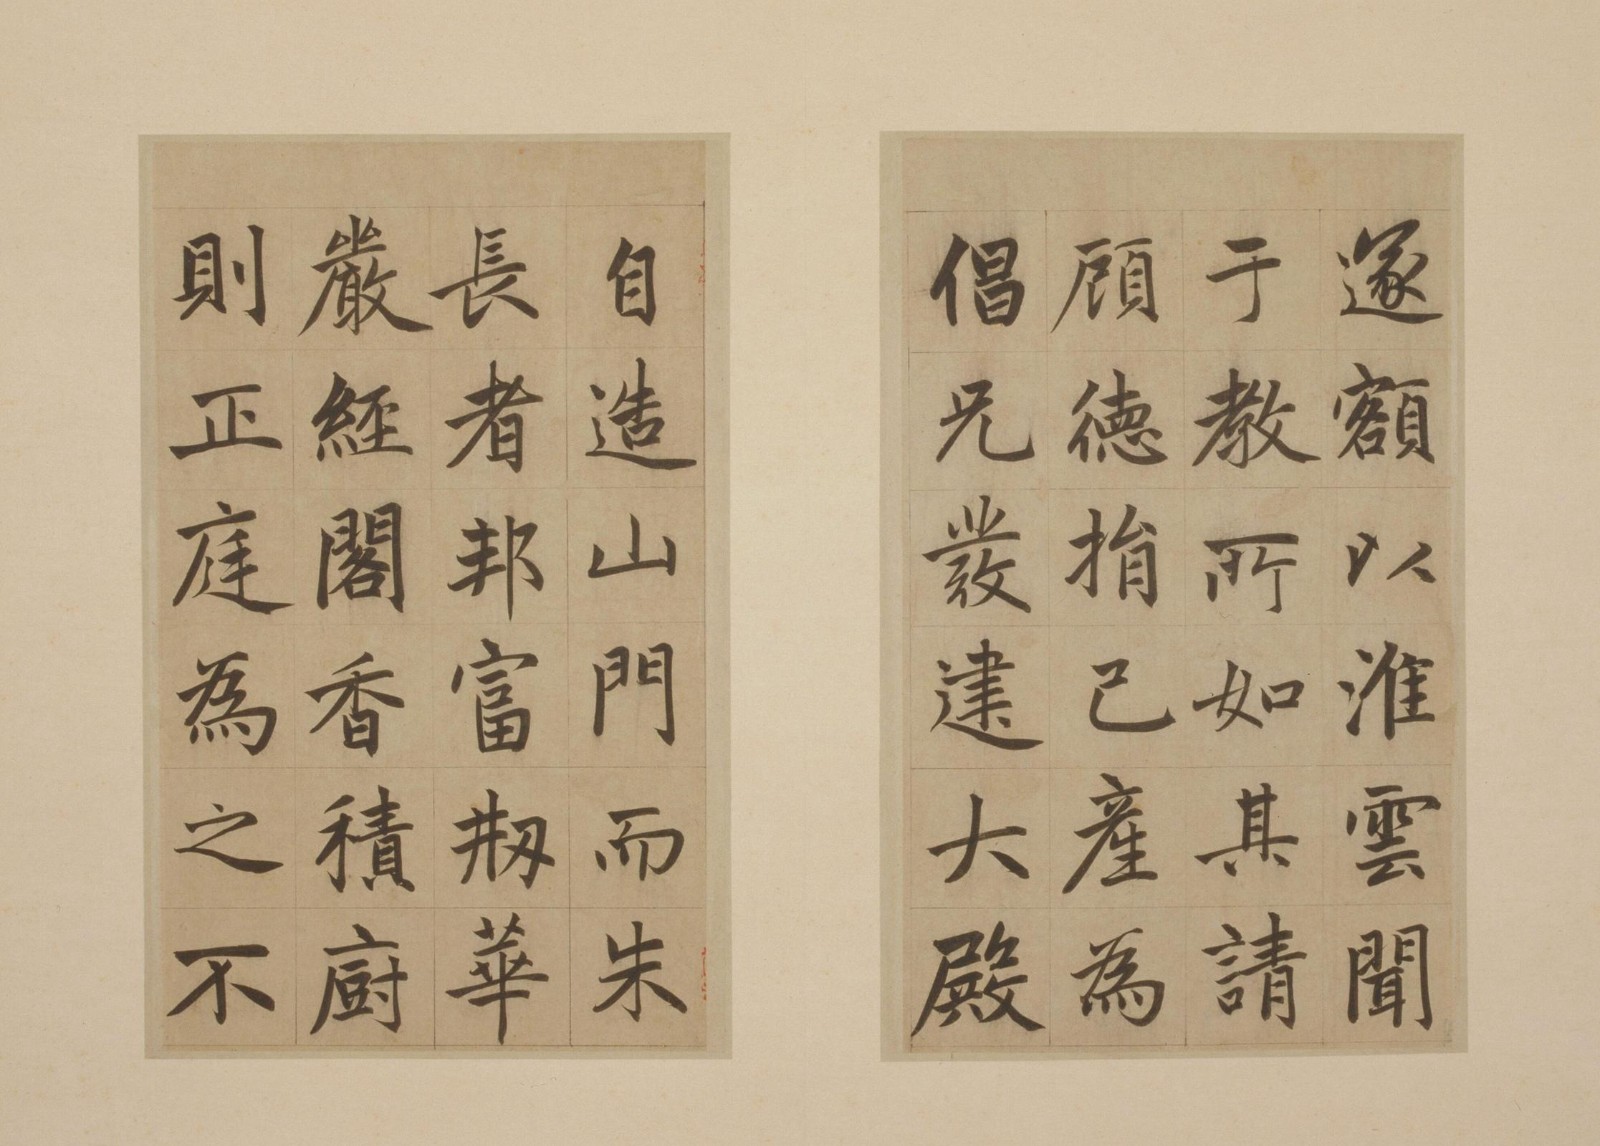 遂額以淮雲聞
于教所如其請
顧德捐己產為
倡尤發建大殿
自造山門而朱
長者邦富剏華
嚴經閣香積廚
則正庭為之不